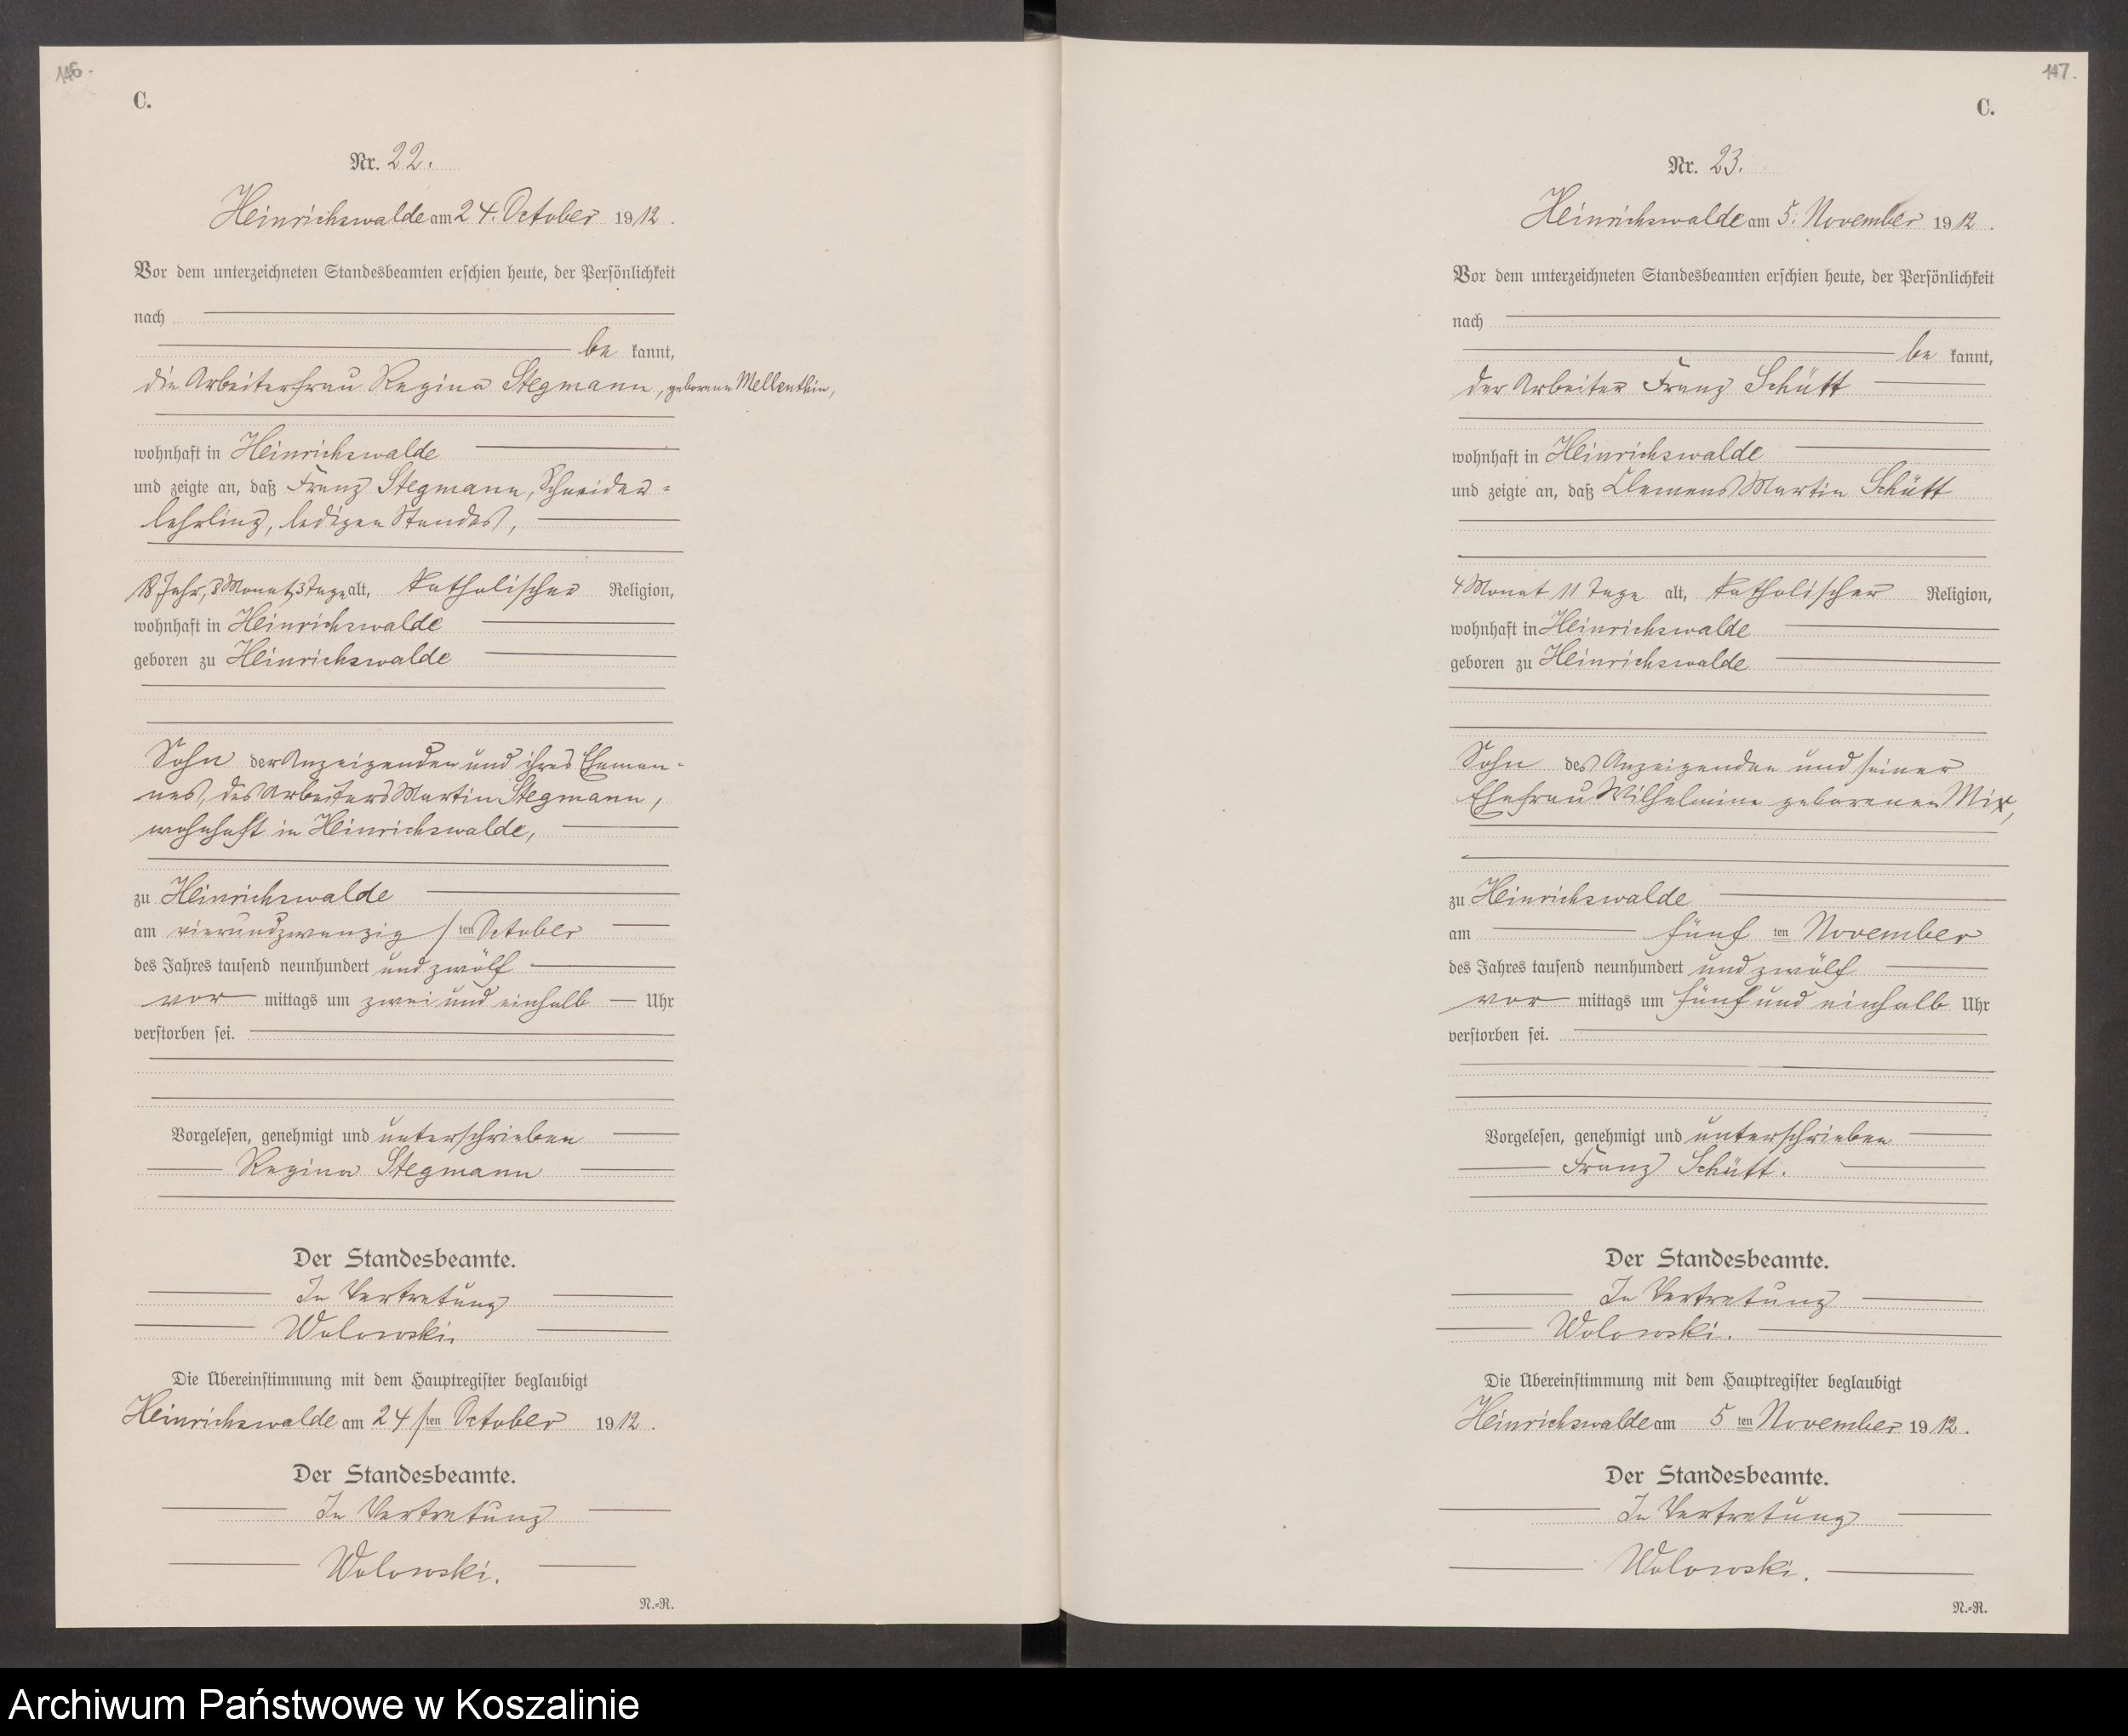 146.
C.
Nr. 22.
Heinrichswalde am 24. October 1912.
Vor dem unterzeichneten Standesbeamten erschien heute, der Persönlichkeit
nach
be kannt,
die Arbeiterfrau Regina Stegmann, geborene Mellenthin,
wohnhaft in Heinrichswalde
und zeigte an, daß Franz Stegmann, Schneider-
lehrling, ledigen Standes,
18 Jahr, 8 Monat, 3 Tage alt, katholischer Religion,
wohnhaft in Heinrichswalde
geboren zu Heinrichswalde
Sohn der Anzeigenden und ihres Eheman-
nes, des Arbeiters Martin Stegmann,
wohnhaft in Heinrichswalde,
zu Heinrichswalde
am vierundzwanzig /ten October
des Jahres tausend neunhundert und zwölf
vor mittags um zwei und einhalb Uhr
verstorben sei.
Vorgelesen, genehmigt und unterschrieben
Regina Stegmann
Der Standesbeamte.
In Vertretung
Wolowski.
Die Übereinstimmung mit dem Hauptregister beglaubigt
Heinrichswalde am 24 /ten October 1912.
Der Standesbeamte.
In Vertretung
Wolowski.
N.=R.
147.
C.
Nr. 23.
Heinrichswalde am 5. November 1912.
Vor dem unterzeichneten Standesbeamten erschien heute, der Persönlichkeit
nach
be kannt,
der Arbeiter Franz Schütt
wohnhaft in Heinrichswalde
und zeigte an, daß Clemens Martin Schütt
4 Monat 11 Tage alt, katholischer Religion,
wohnhaft in Heinrichswalde
geboren zu Heinrichswalde
Sohn des Anzeigenden und seiner
Ehefrau Wilhelmine geborenen Mix,
zu Heinrichswalde
am fünf ten November
des Jahres tausend neunhundert und zwölf
vor mittags um fünf und einhalb Uhr
verstorben sei.
Vorgelesen, genehmigt und unterschrieben
Franz Schütt.
Der Standesbeamte.
In Vertretung
Wolowski.
Die Übereinstimmung mit dem Hauptregister beglaubigt
Heinrichswalde am 5 ten November 1912.
Der Standesbeamte.
In Vertretung
Wolowski.
N.=R.
Archiwum Państwowe w Koszalinie